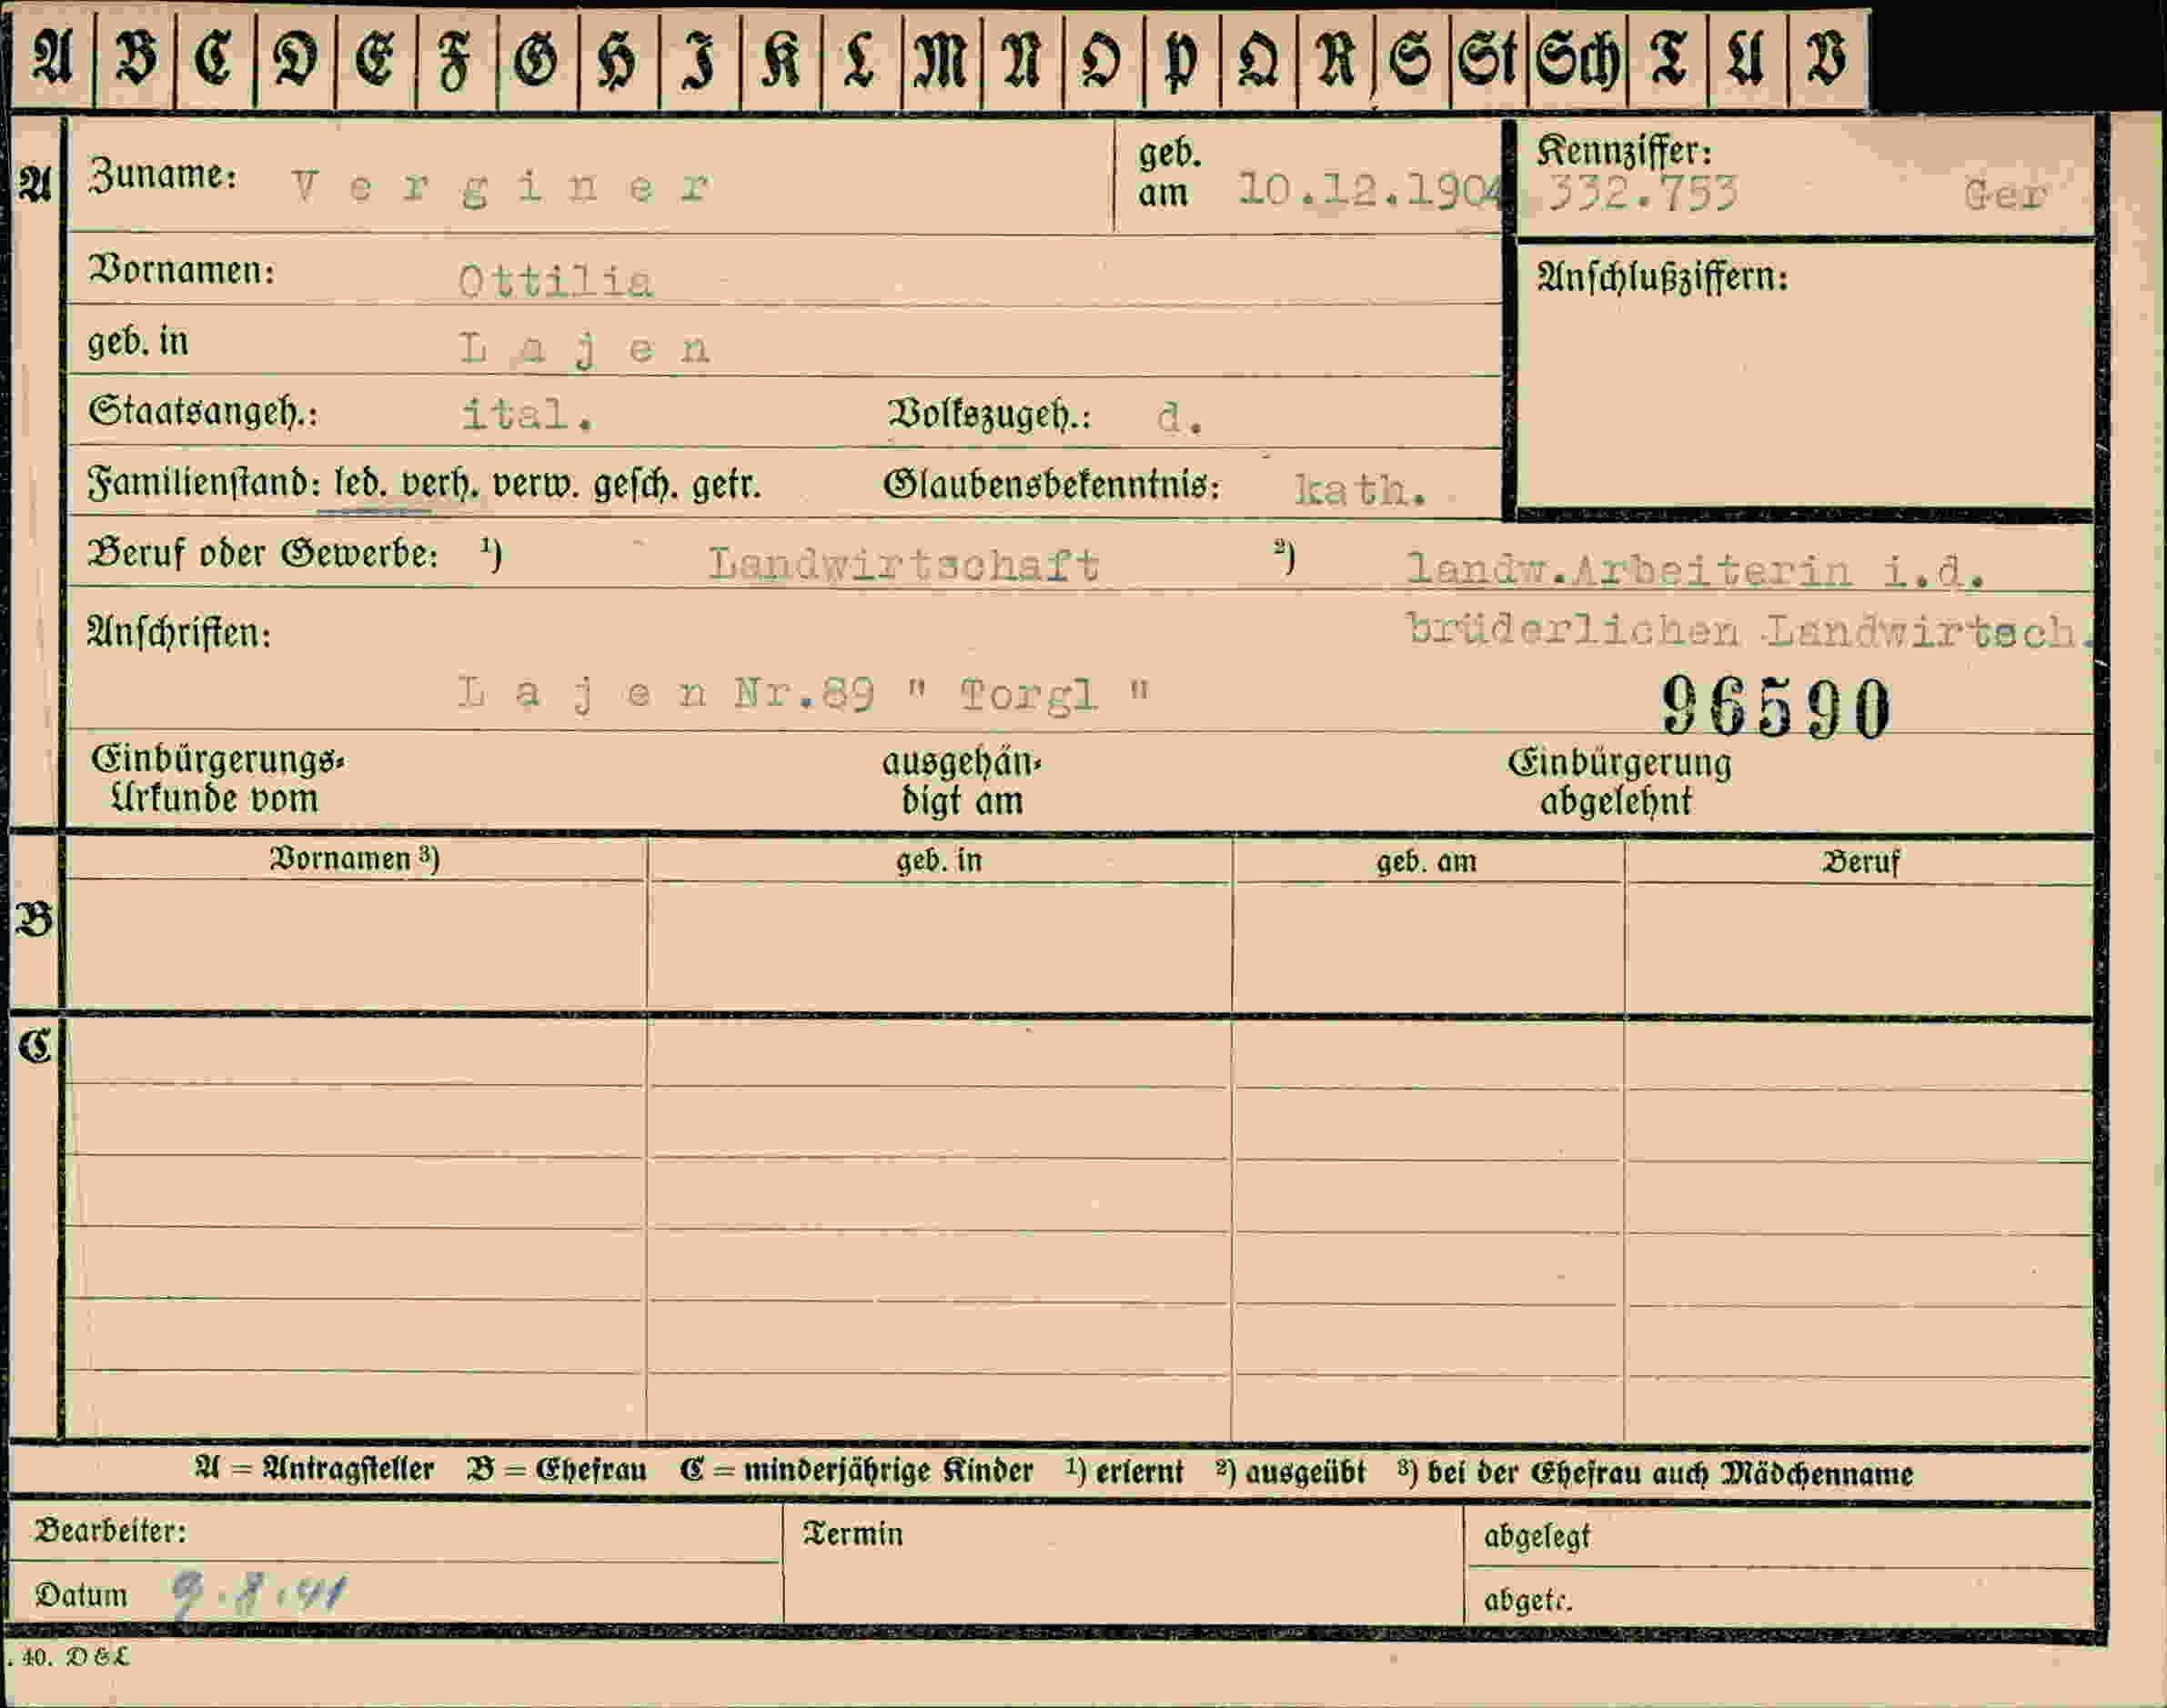 A B C D E F G H I K L M N O P Q R S St Sch T U V
A
Zuname: Verginer
geb. am 10.12.1904
Kennziffer: 332.753 Ger
Vornamen: Ottilia
Anschlußziffern:
geb. in Lajen
Staatsangeh.: ital. Volkszugeh.: d.
Familienstand: led. verh. verw. gesch. getr. Glaubensbekenntnis: kath.
Beruf oder Gewerbe: ¹) Landwirtschaft ²) landw.Arbeiterin i.d.
brüderlichen Landwirtsch.
Anschriften:
Lajen Nr.89 " Torgl "
96590
Einbürgerungs-
Urkunde vom
ausgehän-
digt am
Einbürgerung
abgelehnt
B
Vornamen ³) geb. in geb. am Beruf
C
A = Antragsteller B = Ehefrau C = minderjährige Kinder ¹) erlernt ²) ausgeübt ³) bei der Ehefrau auch Mädchenname
Bearbeiter: Termin abgelegt
Datum 9.8.41 abgetr.
. 40. D & L